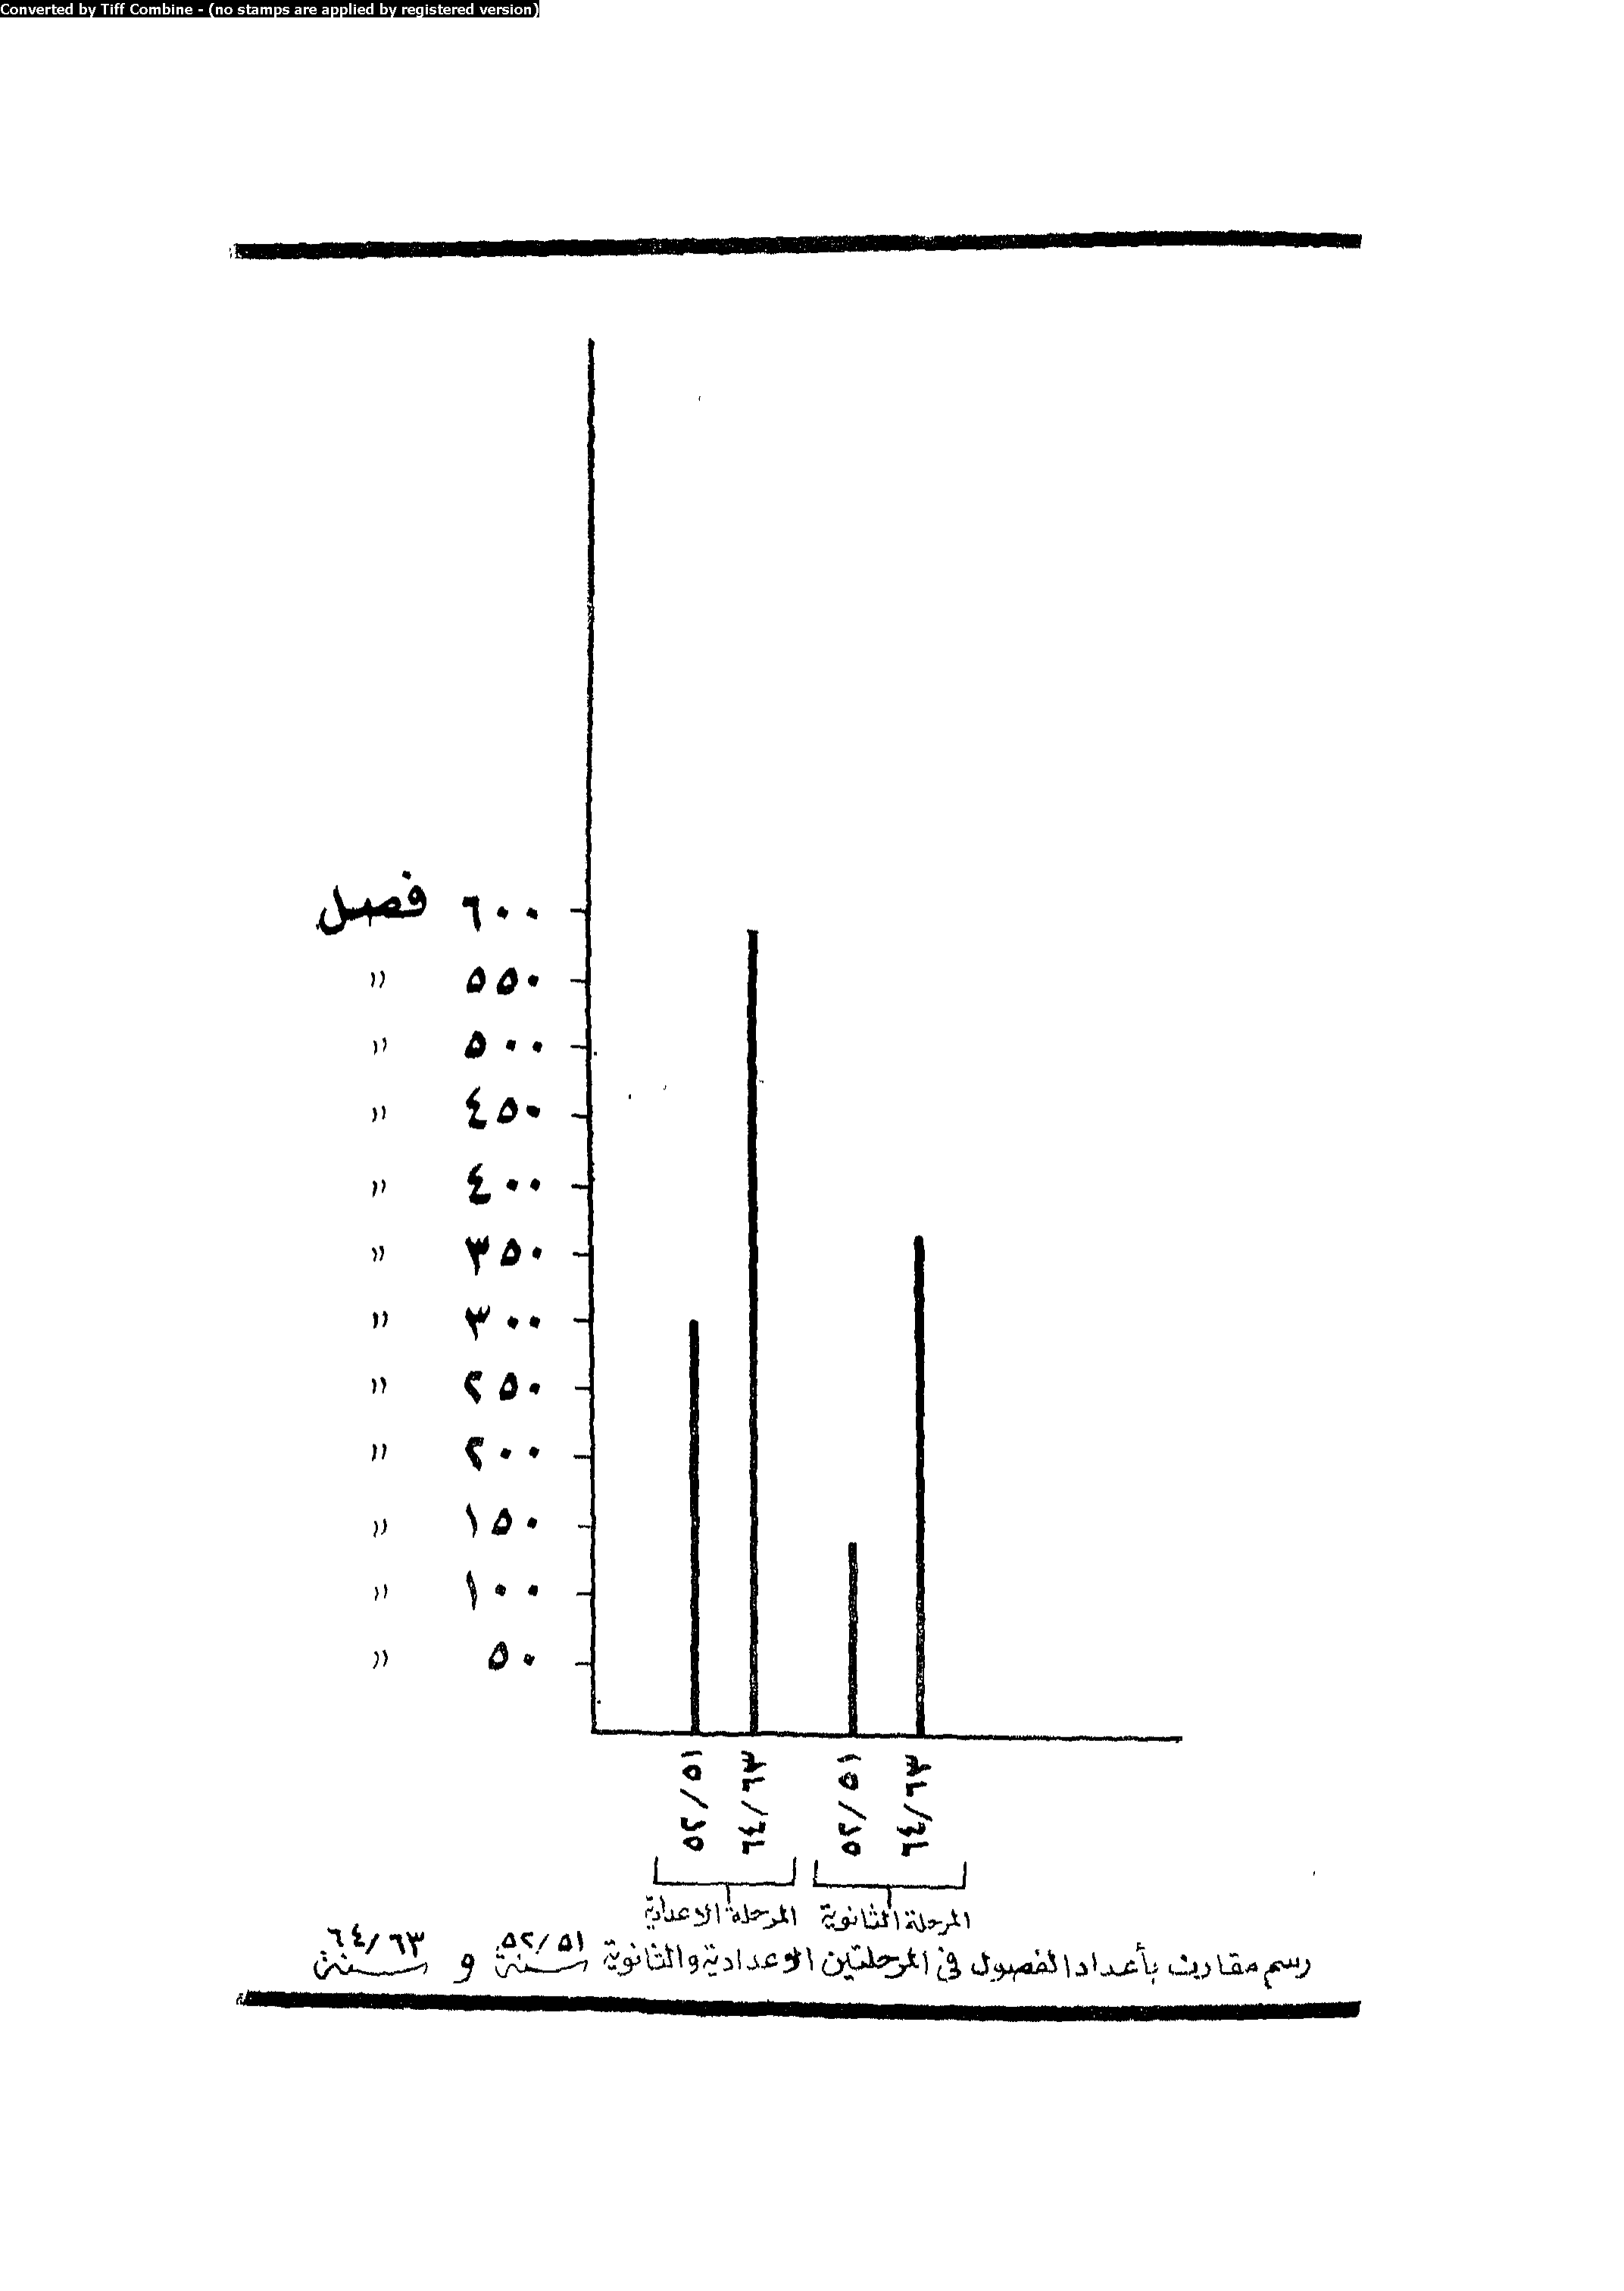 Converted by Tiff Combine - (no stamps are applied by registered version)
٦٠٠ فصل
٥٥٠ 〃
٥٠٠ 〃
٤٥٠ 〃
٤٠٠ 〃
٣٥٠ 〃
٣٠٠ 〃
٢٥٠ 〃
٢٠٠ 〃
١٥٠ 〃
١٠٠ 〃
٥٠ 〃
٥٢/٥١
٦٤/٦٣
٥٢/٥١
٦٤/٦٣
المرحلة الاعدادية
المرحلة الثانوية
رسم مقارن بأعداد الفصول في المرحلتين الاعدادية والثانوية سنة ٥٢/٥١ و سنة ٦٤/٦٣